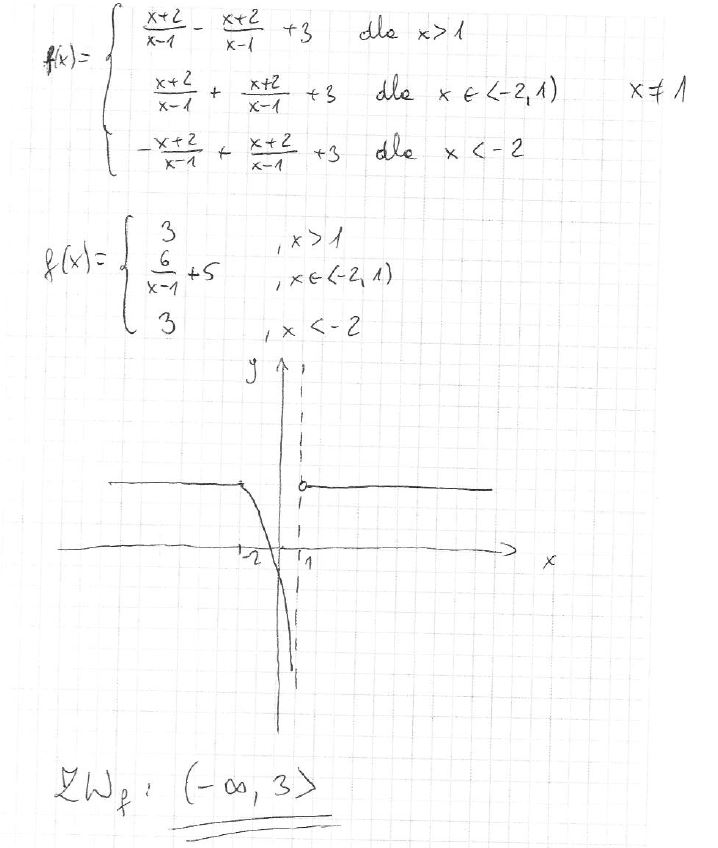 f(x) = { (x+2)/(x-1) - (x+2)/(x-1) + 3 dla x > 1
(x+2)/(x-1) + (x+2)/(x-1) + 3 dla x ∈ <-2, 1) x ≠ 1
-(x+2)/(x-1) + (x+2)/(x-1) + 3 dla x < -2
f(x) = { 3 , x > 1
6/(x-1) + 5 , x ∈ <-2, 1)
3 , x < -2
y
-2 1 x
ZWf : (-∞, 3>